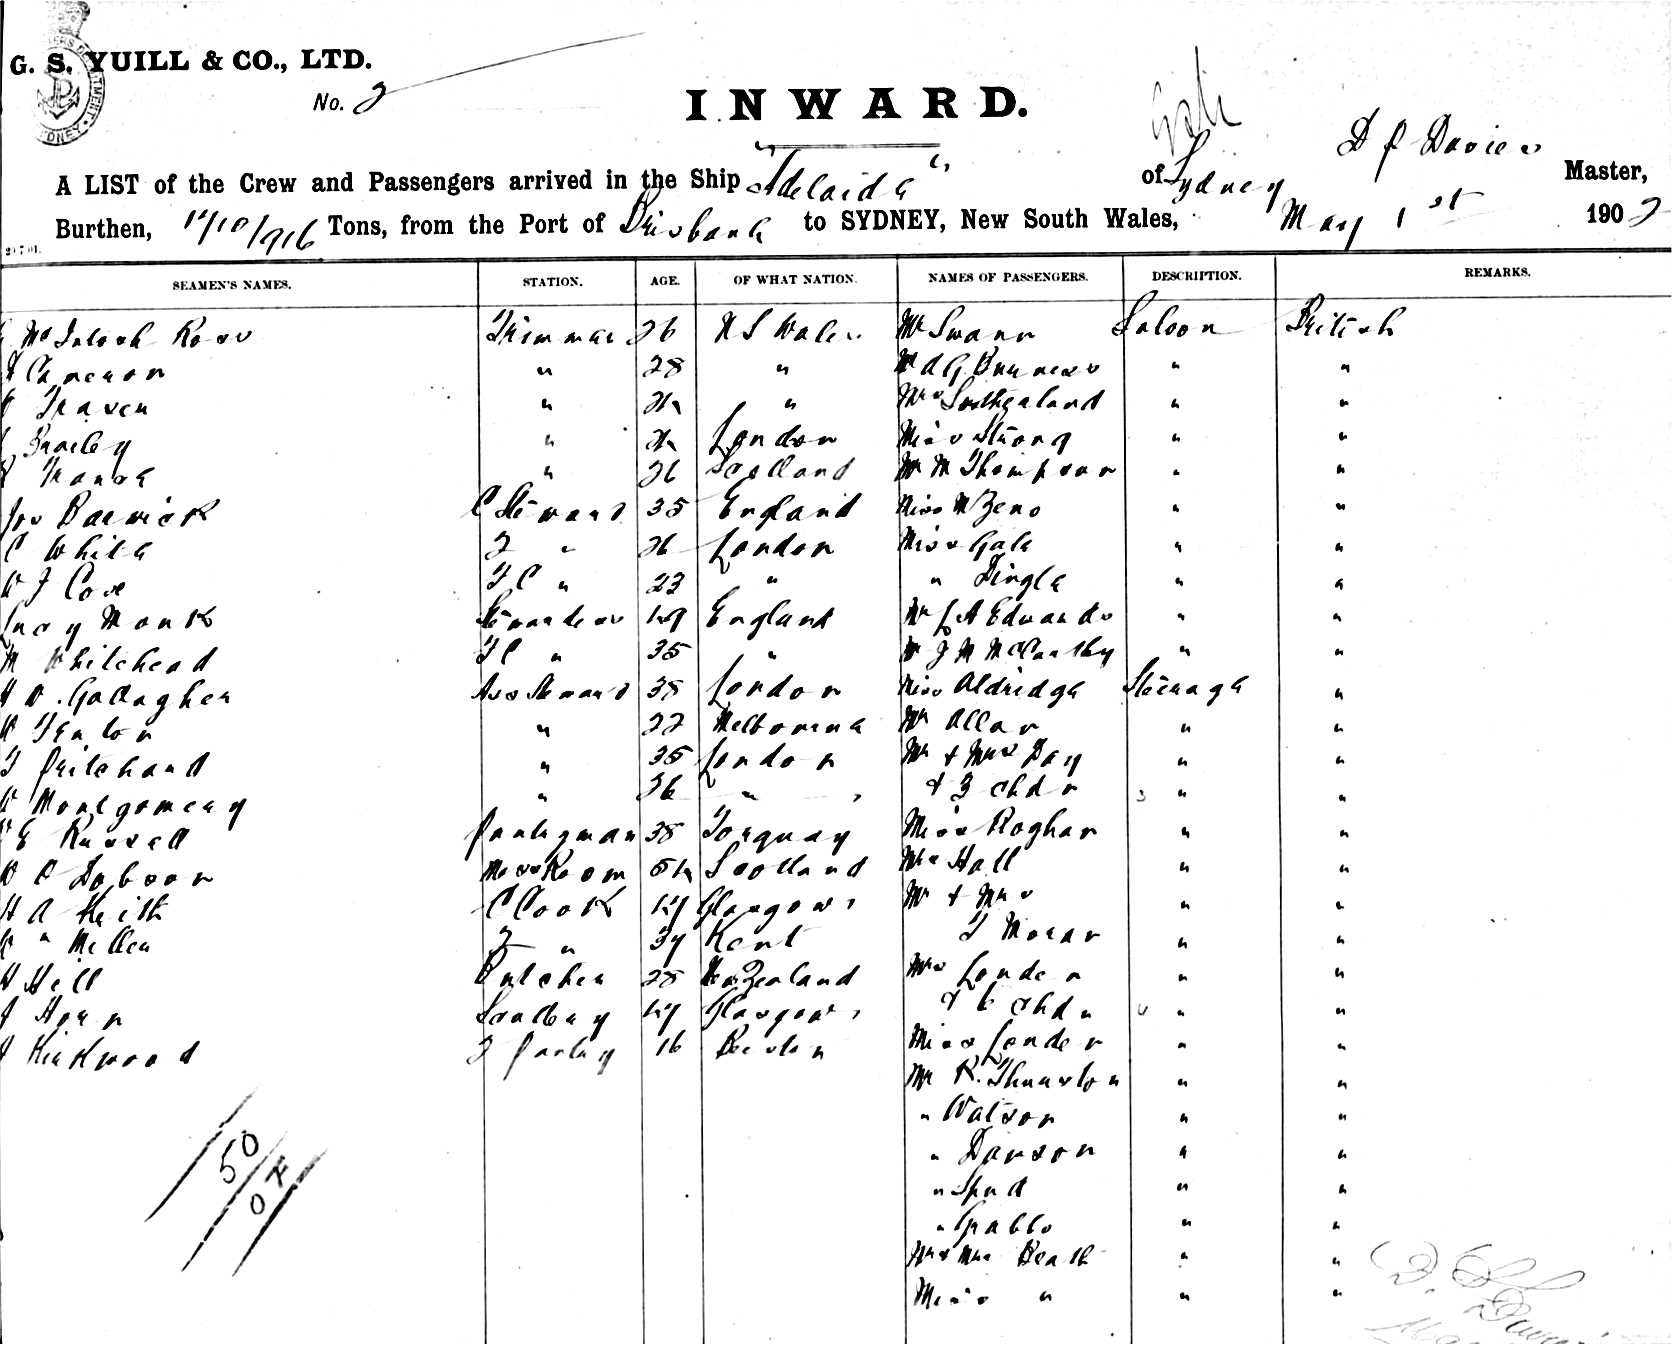 G. S. YUILL & CO., LTD.
No. 2
INWARD.
D J Davies
A LIST of the Crew and Passengers arrived in the Ship "Adelaide" of Sydney Master,
Burthen, Tons, from the Port of Brisbane to SYDNEY, New South Wales, May 1st 1902
SEAMEN'S NAMES. STATION. AGE. OF WHAT NATION. NAMES OF PASSENGERS. DESCRIPTION. REMARKS.
McIntosh Ross Trimmer 26 N S Wales Mr Swann Saloon British
Cameron " 28 " Mr A G " "
Fraser " 24 " Mrs Sutherland " "
" 24 London Miss Strong " "
" 26 Scotland Mr M Thompson " "
Jos Barwick C Steward 35 England Miss M Zeno " "
C White 2 " 26 London Miss Gale " "
W J Cox F C " 23 " " Dingle " "
Lucy Monk Stewardess 49 England Mr L A Edwards " "
M Whitehead F C " 35 " Mr J M McCarthy " "
H W. Gallagher Ass Steward 38 London Miss Aldridge Steerage "
W Fenton " 22 Melbourne Mr Allan " "
T Pritchard " 35 London Mr & Mrs Day " "
W Montgomery " 26 " & 3 chdn 3 " "
E Russell Pantryman 38 Torquay Miss " "
W C Dobson Mess Room 54 Scotland Mrs Hall " "
H A Keith C Cook 47 Glasgow Mr & Mrs " "
" Miller 2 " 37 Kent T Moran " "
H Hill Butcher 28 New Zealand Mrs Londer " "
J Horn Scullery 47 Glasgow & 6 chdn 6 " "
J Kirkwood 2 Pantry 16 Miss Londer " "
Mr R. Thurston " "
" Watson " "
" Dawson " "
" " "
" " "
Mr & Mrs Beath " "
Miss " " "
50